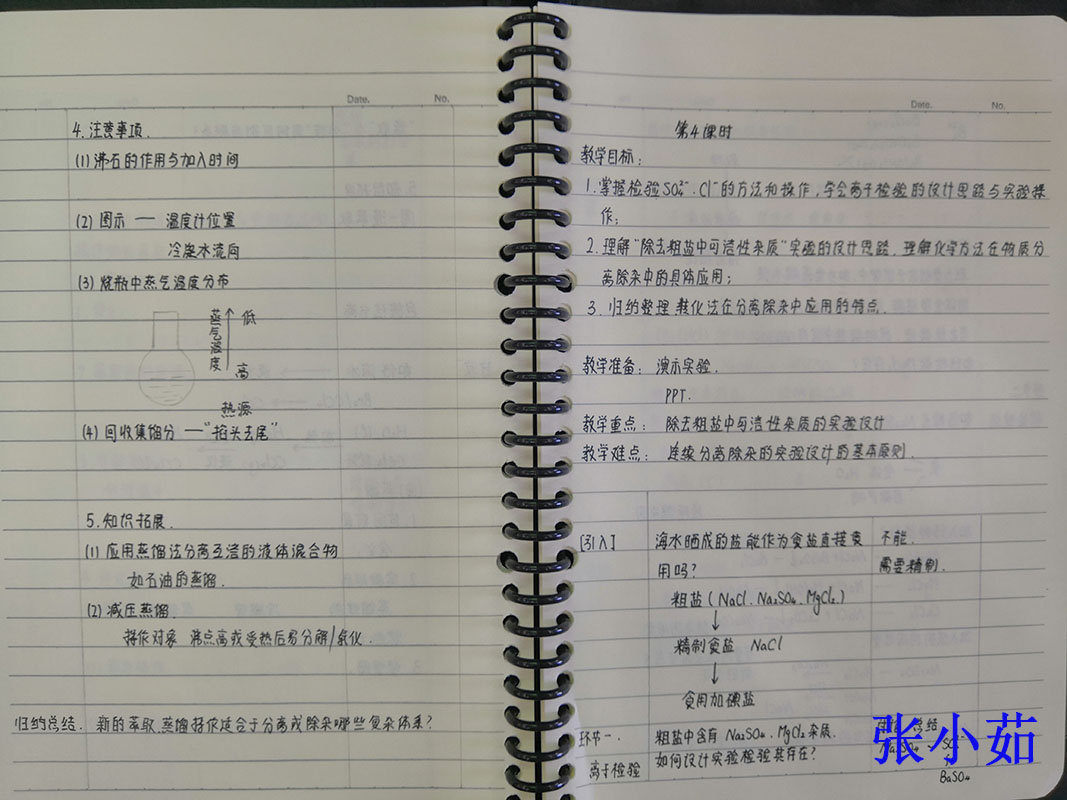 Date. No.
4.注意事项.
(1)沸石的作用与加入时间
(2)图示 — 温度计位置
冷凝水流向
(3)烧瓶中蒸气温度分布
蒸气温度
低
高
热源
(4)回收集馏分 —"掐头去尾"
5.知识拓展.
(1)应用蒸馏法分离互溶的液体混合物
如石油的蒸馏.
(2)减压蒸馏.
操作对象 沸点高或受热后易分解/氧化.
归纳总结. 新的萃取.蒸馏操作适合于分离或除杂哪些复杂体系?
Date. No.
第4课时
教学目标:
1.掌握检验SO₄²⁻、Cl⁻的方法和操作,学会离子检验的设计思路与实验操
作;
2.理解"除去粗盐中可溶性杂质"实验的设计思路.理解化学方法在物质分
离除杂中的具体应用;
3.归纳整理转化法在分离除杂中应用的特点.
教学准备: 演示实验.
PPT.
教学重点: 除去粗盐中可溶性杂质的实验设计
教学难点: 连续分离除杂的实验设计的基本原则.
[引入] 海水晒成的盐能作为食盐直接食 不能.
用吗? 需要精制.
粗盐(NaCl、Na₂SO₄、MgCl₂)
↓
精制食盐 NaCl
↓
食用加碘盐
环节一. 粗盐中含有Na₂SO₄、MgCl₂杂质. 总结
离子检验 如何设计实验检验其存在?
BaSO₄
张小茹